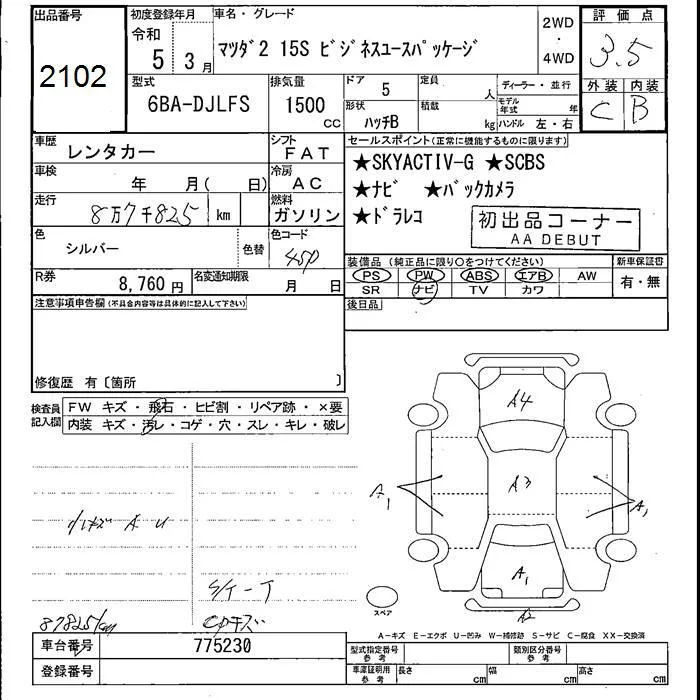 出品番号
2102
初度登録年月
令和
5 3月
車名・グレード
マツダ2 15S ビジネスユースパッケージ
2WD
・
4WD
評価点
3.5
外装 内装
C B
型式
6BA-DJLFS
排気量
1500
CC
ドア 5
形状 ハッチB
定員 人
積載 kg
ディーラー・並行
モデル年式 年
ハンドル 左・右
車歴 レンタカー
シフト FAT
車検 年 月( 日)
冷房 AC
走行 8万7千825 km
燃料 ガソリン
色 シルバー
色替
色コード 45P
R券 8,760円
名変通知期限 月 日
セールスポイント(正常に機能するものに限ります)
★SKYACTIV-G ★SCBS
★ナビ ★バックカメラ
★ドラレコ
初出品コーナー
AA DEBUT
装備品 (純正品に限り○をつけてください)
PS PW ABS エアB AW
SR ナビ TV カワ
新車保証書
有・無
後日品
注意事項申告欄(不具合内容等は具体的に記入して下さい)
修復歴 有〔箇所 〕
検査員記入欄
FW キズ・飛石・ヒビ割・リペア跡・×要
内装 キズ・汚レ・コゲ・穴・スレ・キレ・破レ
A4
A3
A1
A1
A1
A2
スペア
小キズ A U
S/T-T
CPキズ
87825km
A-キズ E-エクボ U-凹み W-補修跡 S-サビ C-腐食 XX-交換済
車台番号 775230
登録番号
型式指定番号 参考
類別区分番号 参考
車庫証明用 参考
長さ cm 幅 cm 高さ cm